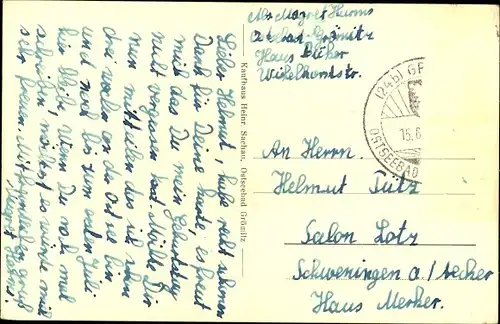 Lieber Helmut, habe recht schönen
Dank für Deine Karte, es freut
mich das Du mein Geburtstag
nicht vergessen hast. Möchte Dir
nun mitteilen das ich schon
drei Wochen an der Ostsee bin
und noch bis zum ersten Juli
hier bleibe. Wenn Du noch mal
schreiben möchtest es würde mich
sehr freuen. Mit freundlichen Gruß
Kaufhaus Heinr. Sachau, Ostseebad Grömitz
Abs. Magret
Ostseebad Grömitz
Haus Bücher
(24b) GR
OSTSEEBAD
15.6
An Herrn.
Helmut Tütz
Salon Lotz
Schweningen a/Necher
Haus Merker.